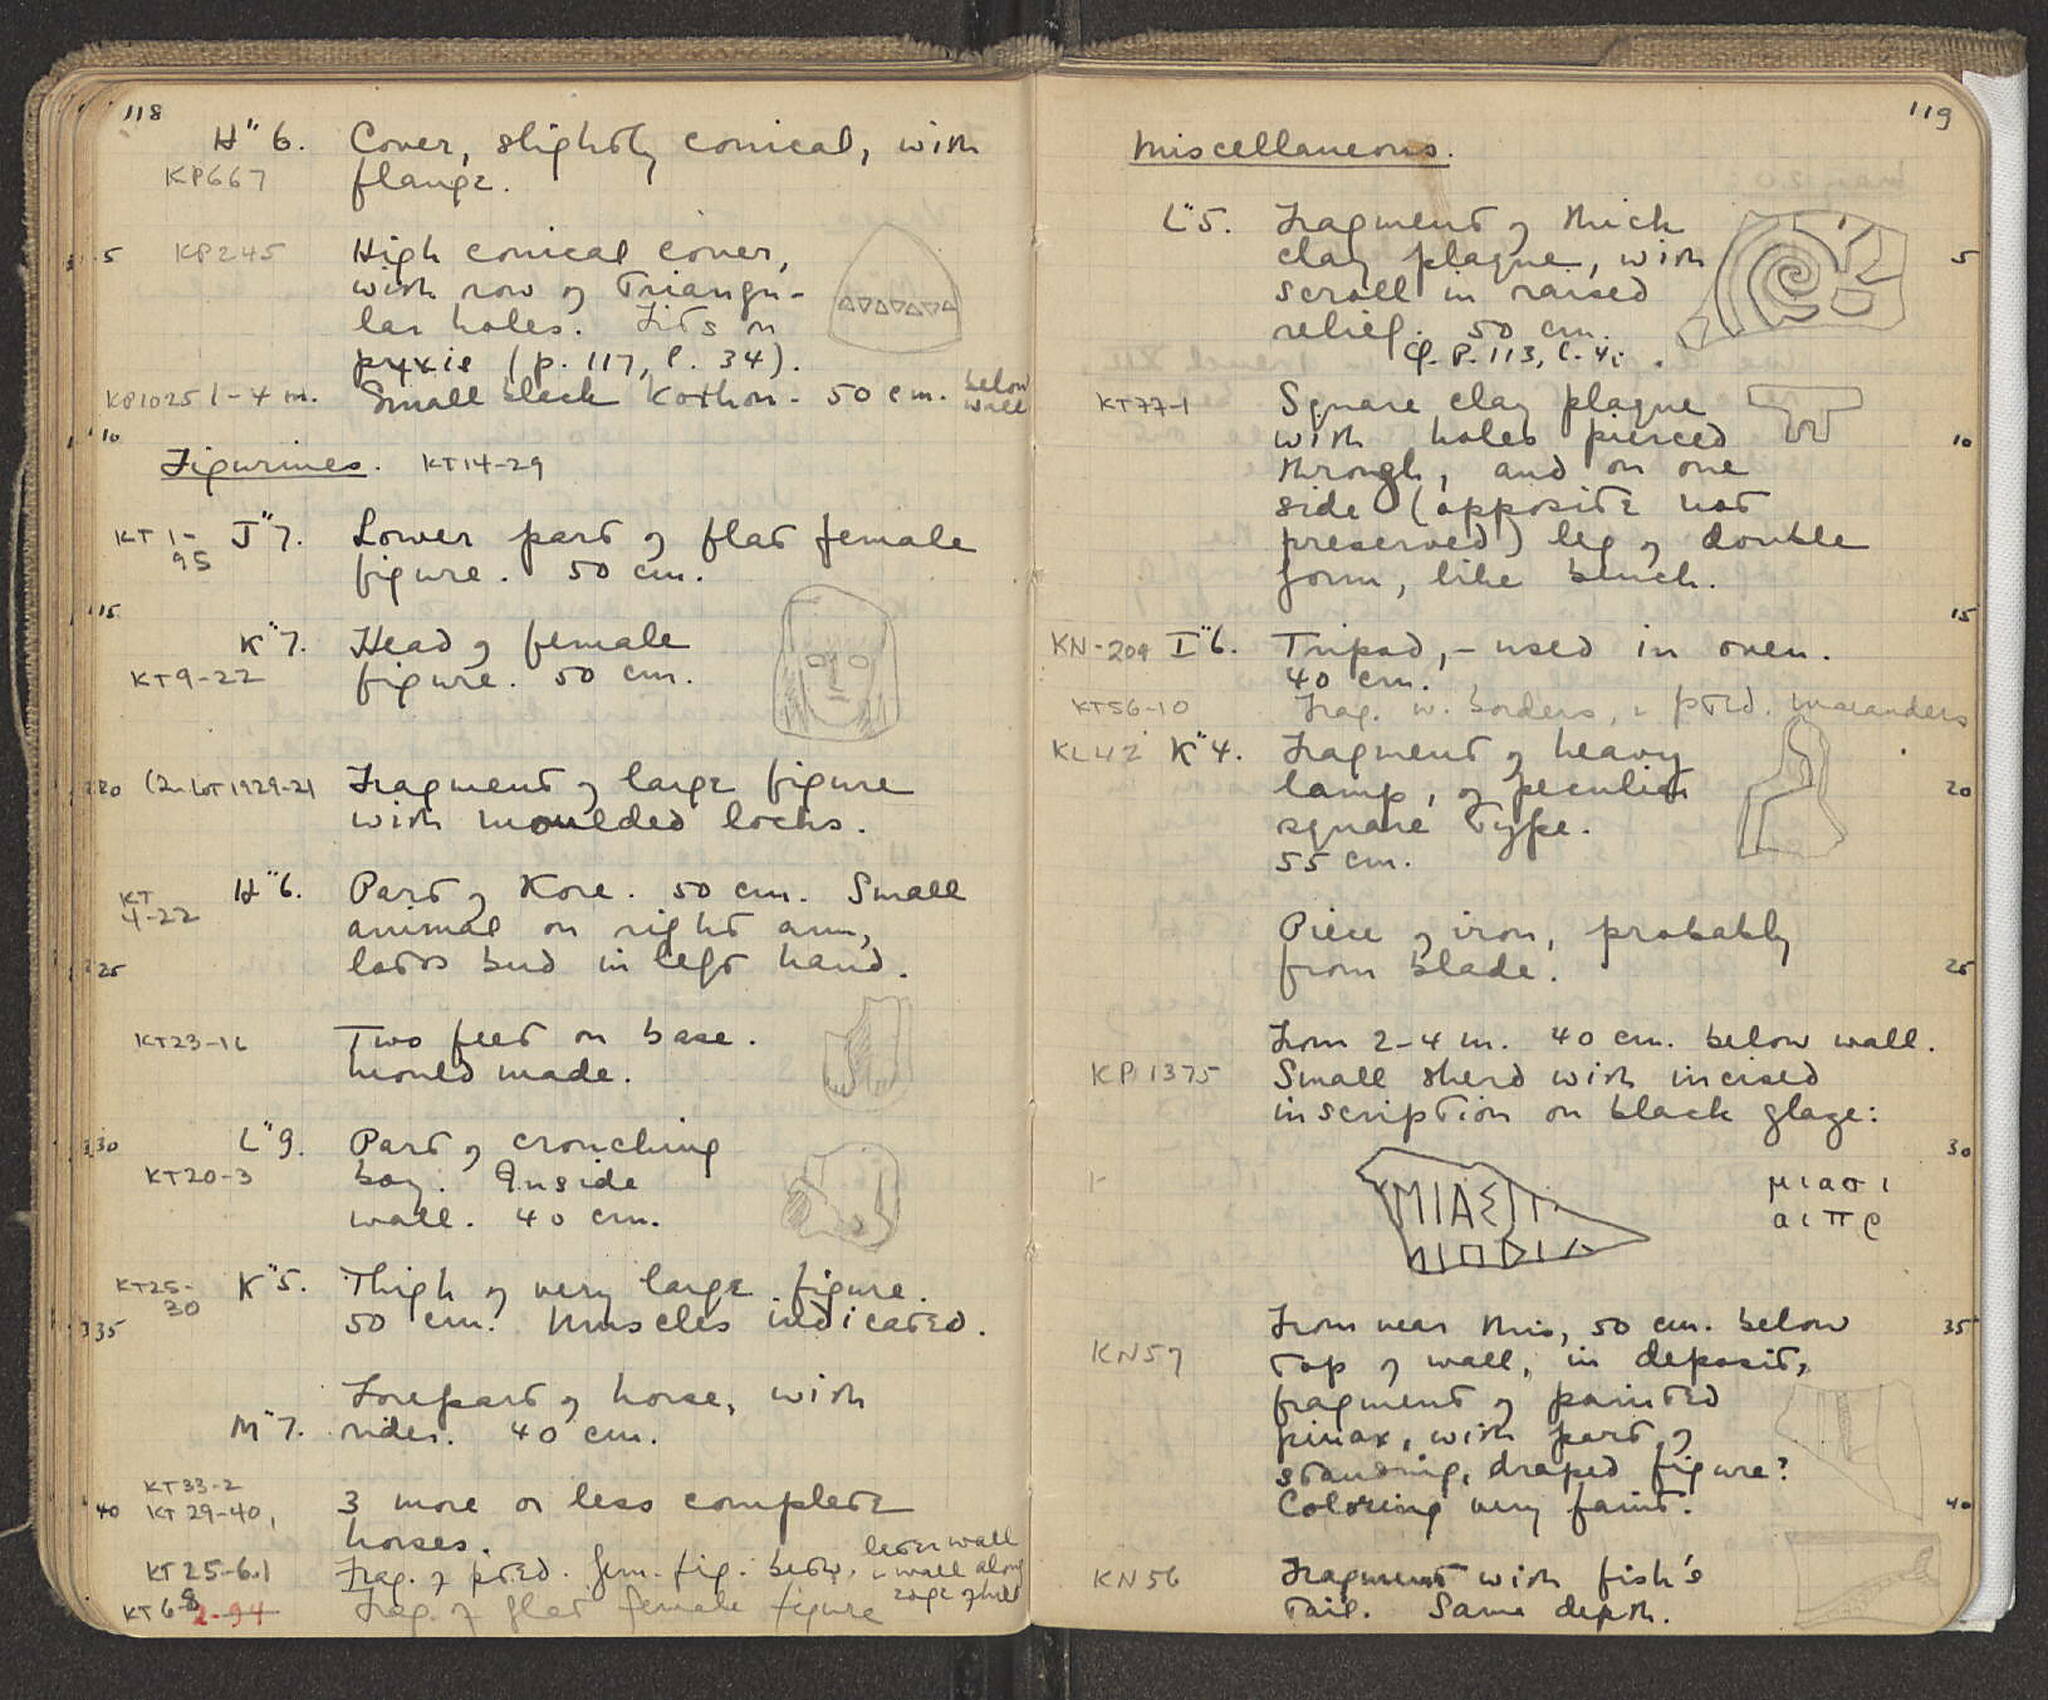 118
H"6. Cover, slightly conical, with
KP667 flange.
5 KP245 High conical cover,
with row of triangu-
lar holes. Fits on
pyxis (p. 117, l. 34).
KP1025 1-4 m. Small black Kothon - 50 cm. below
wall
10
Figurines. KT14-29
KT1- J"7. Lower part of flat female
95 figure. 50 cm.
15
K"7. Head of female
KT9-22 figure. 50 cm.
20 (In lot 1929-2) Fragment of large figure
with moulded locks.
KT H"6. Part of Kore. 50 cm. Small
4-22 animal on right arm,
25 lotos bud in left hand.
KT23-16 Two feet on base.
Mould made.
30 L"9. Part of crouching
KT20-3 boy. Inside
wall. 40 cm.
KT25- K"5. Thigh of very large figure.
30
35 50 cm. Muscles indicated.
Forepart of horse, with
M"7. rider. 40 cm.
KT33-2
40 KT29-40, 3 more or less complete
horses.
KT25-6.1 Frag. of ptd. fem. fig. betw. later wall
& wall along
edge of hill
KT6-8 2-94 Frag. of flat female figure
119
Miscellaneous.
L"5. Fragment of thick
clay plaque, with 5
scroll in raised
relief. 50 cm.
Cf. P. 113, l. 4;
KT77-1 Square clay plaque
with holes pierced 10
through, and on one
side (opposite not
preserved) leg of double
form, like bench.
15
KN-209 I"6. Tripod, - used in oven.
40 cm.
KT56-10 Frag. w. borders, & ptd. maeanders
KL42 K"4. Fragment of heavy
lamp, of peculiar 20
square type.
55 cm.
Piece of iron, probably
from blade. 25
From 2-4 m. 40 cm. below wall.
KP1375 Small sherd with incised
inscription on black glaze:
30
ΜΙΑΣΙ μιασι
αιπρ
From near this, 50 cm. below 35
KN57 top of wall, in deposit,
fragment of painted
pinax, with part of
standing, draped figure?
Coloring very faint. 40
KN56 Fragment with fish's
tail. Same depth.